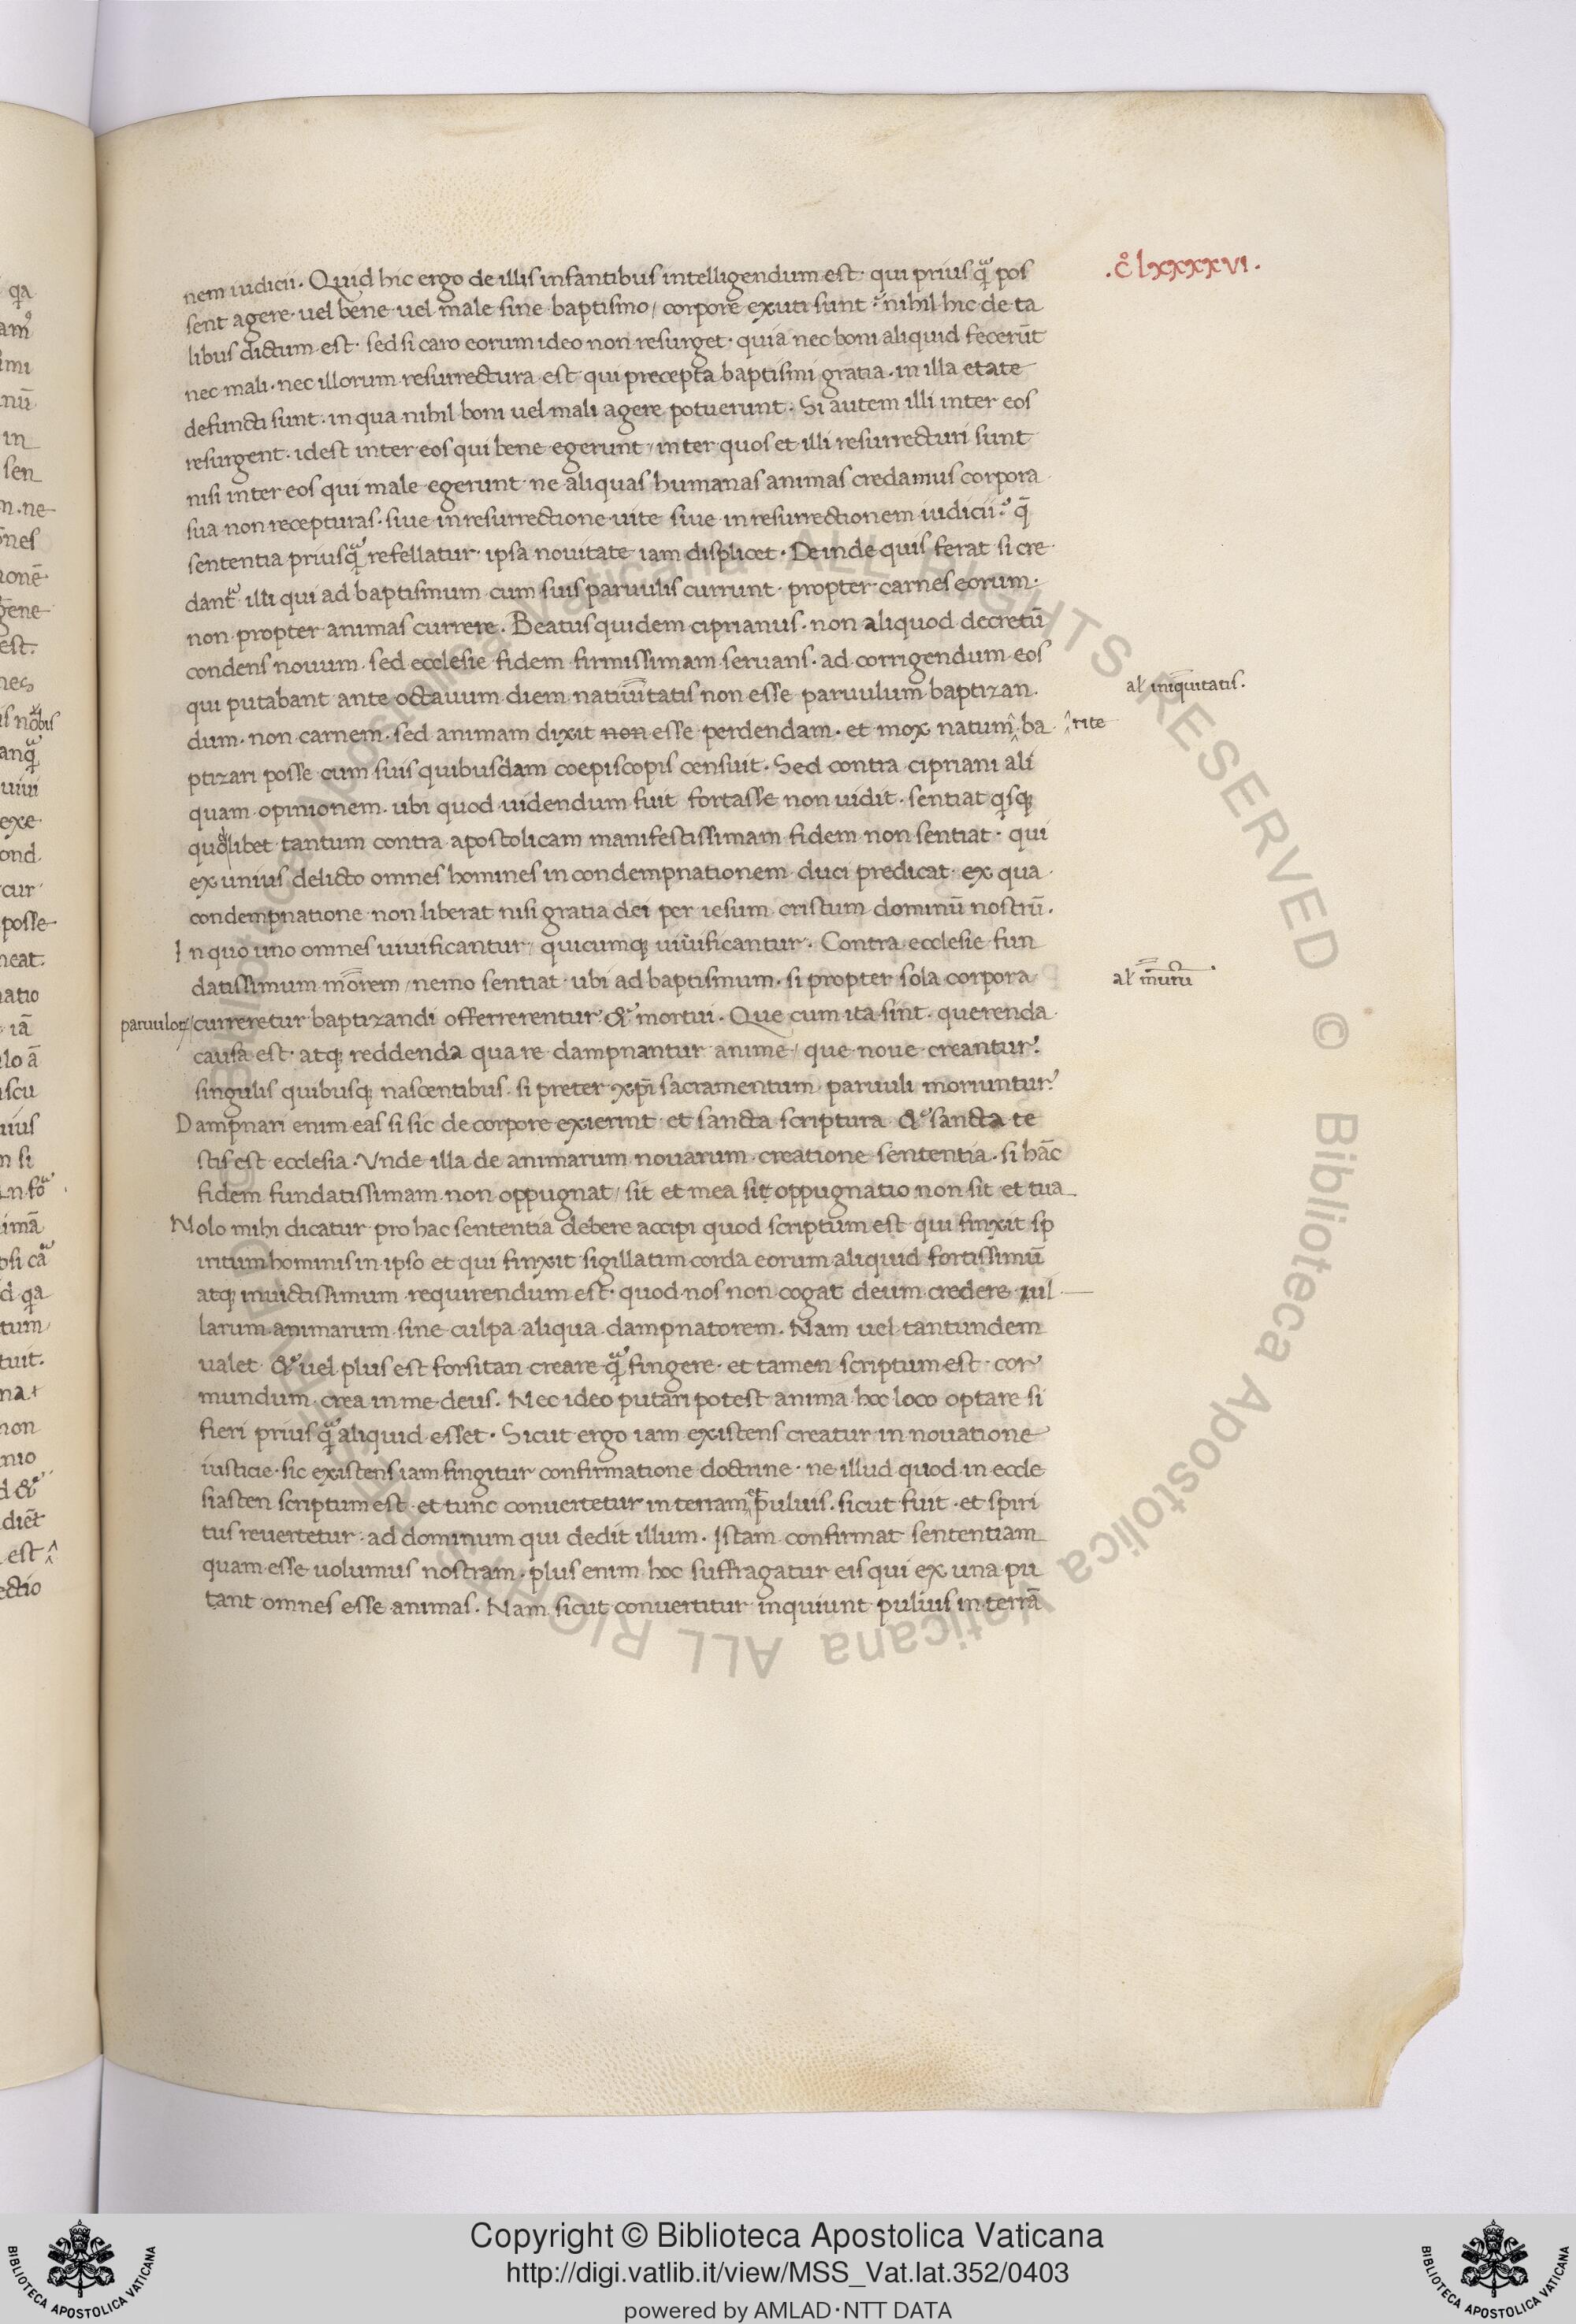 .c̊ lxxxxvi.
nem iudicii. Quid hic ergo de illis infantibus intelligendum est. qui priusq̃ pos
sent agere. uel bene uel male sine baptismo / corpore exuti sunt? nihil hic de ta
libus dictum est. sed si caro eorum ideo non resurget. quia nec boni aliquid fecerūt
nec mali. nec illorum resurrectura est qui precepta baptismi gratia. in illa etate
defuncti sunt. in qua nihil boni uel mali agere potuerunt. Si autem illi inter eos
resurgent. idest inter eos qui bene egerunt / inter quos et illi resurrecturi sunt
nisi inter eos qui male egerunt ne aliquas humanas animas credamus corpora
sua non recepturas. siue in resurrectione uite siue in resurrectionem iudicii? q̄
sententia priusq̃ refellatur. ipsa nouitate iam displicet. Deinde quis ferat si cre
dant illi qui ad baptismum cum suis paruulis currunt. propter carnes eorum.
non propter animas currere. Beatus quidem ciprianus. non aliquod decretū
condens nouum. sed ecclesie fidem firmissimam seruans. ad corrigendum eos
qui putabant ante octauum diem natiuitatis non esse paruulum baptizan.
al' iniquitatis.
dum. non carnem. sed animam dixit non esse perdendam. et mox natum^ ba
^ rite
ptizari posse cum suis quibusdam coepiscopis censuit. Sed contra cipriani ali
quam opinionem. ubi quod uidendum fuit fortasse non uidit. sentiat qisq;
quolibet tantum contra apostolicam manifestissimam fidem non sentiat. qui
ex unius delicto omnes homines in condempnationem duci predicat. ex qua
condempnatione non liberat nisi gratia dei per iesum cristum dominū nostrū.
In quo uno omnes uiuificantur / quicumq; uiuificantur. Contra ecclesie fun
datissimum mōrem / nemo sentiat. ubi ad baptismum. si propter sola corpora
al' murū
paruuloꝝ / curreretur baptizandi offerrerentur & mortui. Que cum ita sint. querenda
causa est. atq; reddenda qua re dampnantur anime / que noue creantur?
singulis quibusq; nascentibus. si preter xp̄i sacramentum paruuli moriuntur?
Dampnari enim eas si sic de corpore exierint et sancta scriptura & sancta te
stis est ecclesia. Vnde illa de animarum nouarum creatione sententia. si hāc
fidem fundatissimam non oppugnat / sit et mea sit oppugnatio non sit et tua
Nolo mihi dicatur pro hac sententia debere accipi quod scriptum est qui finxit sp
iritum hominis in ipso et qui finxit sigillatim corda eorum aliquid fortissimū
atq; inuictissimum requirendum est. quod nos non cogat deum credere ul
larum animarum sine culpa aliqua dampnatorem. Nam uel tantundem
ualet & uel plus est forsitan creare q̃ fingere. et tamen scriptum est. cor
mundum crea in me deus. Nec ideo putari potest anima hoc loco optare si
fieri priusq̃ aliquid esset. Sicut ergo iam existens creatur in nouatione
iusticie. sic existens iam fingitur confirmatione doctrine. ne illud quod in eccle
siasten scriptum est. et tunc conuertetur in terram puluis. sicut fuit. et spiri
tus reuertetur ad dominum qui dedit illum. Istam confirmat sententiam
quam esse uolumus nostram. plus enim hoc suffragatur eis qui ex una pu
tant omnes esse animas. Nam sicut conuertitur inquiunt puluis in terrā
Copyright © Biblioteca Apostolica Vaticana
http://digi.vatlib.it/view/MSS_Vat.lat.352/0403
powered by AMLAD·NTT DATA